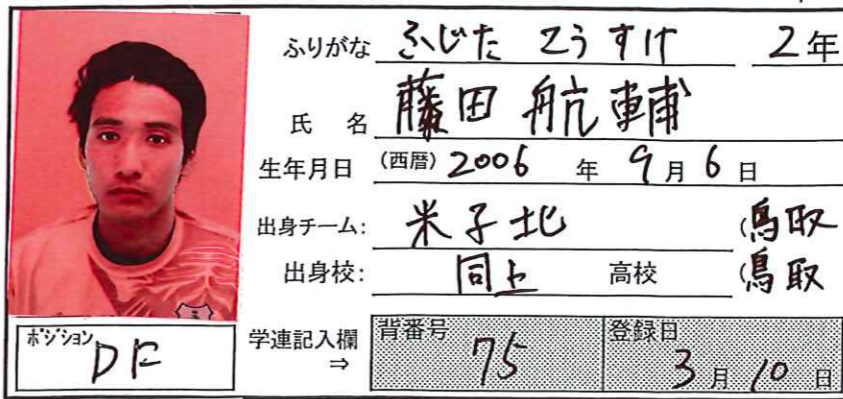 ふりがな ふじた こうすけ 2年
氏 名 藤田 航輔
生年月日 (西暦) 2006 年 9月 6日
出身チーム: 米子北 (鳥取
出身校: 同上 高校 (鳥取
ポジション DF
学連記入欄 ⇒ 背番号 75 登録日 3月 10日